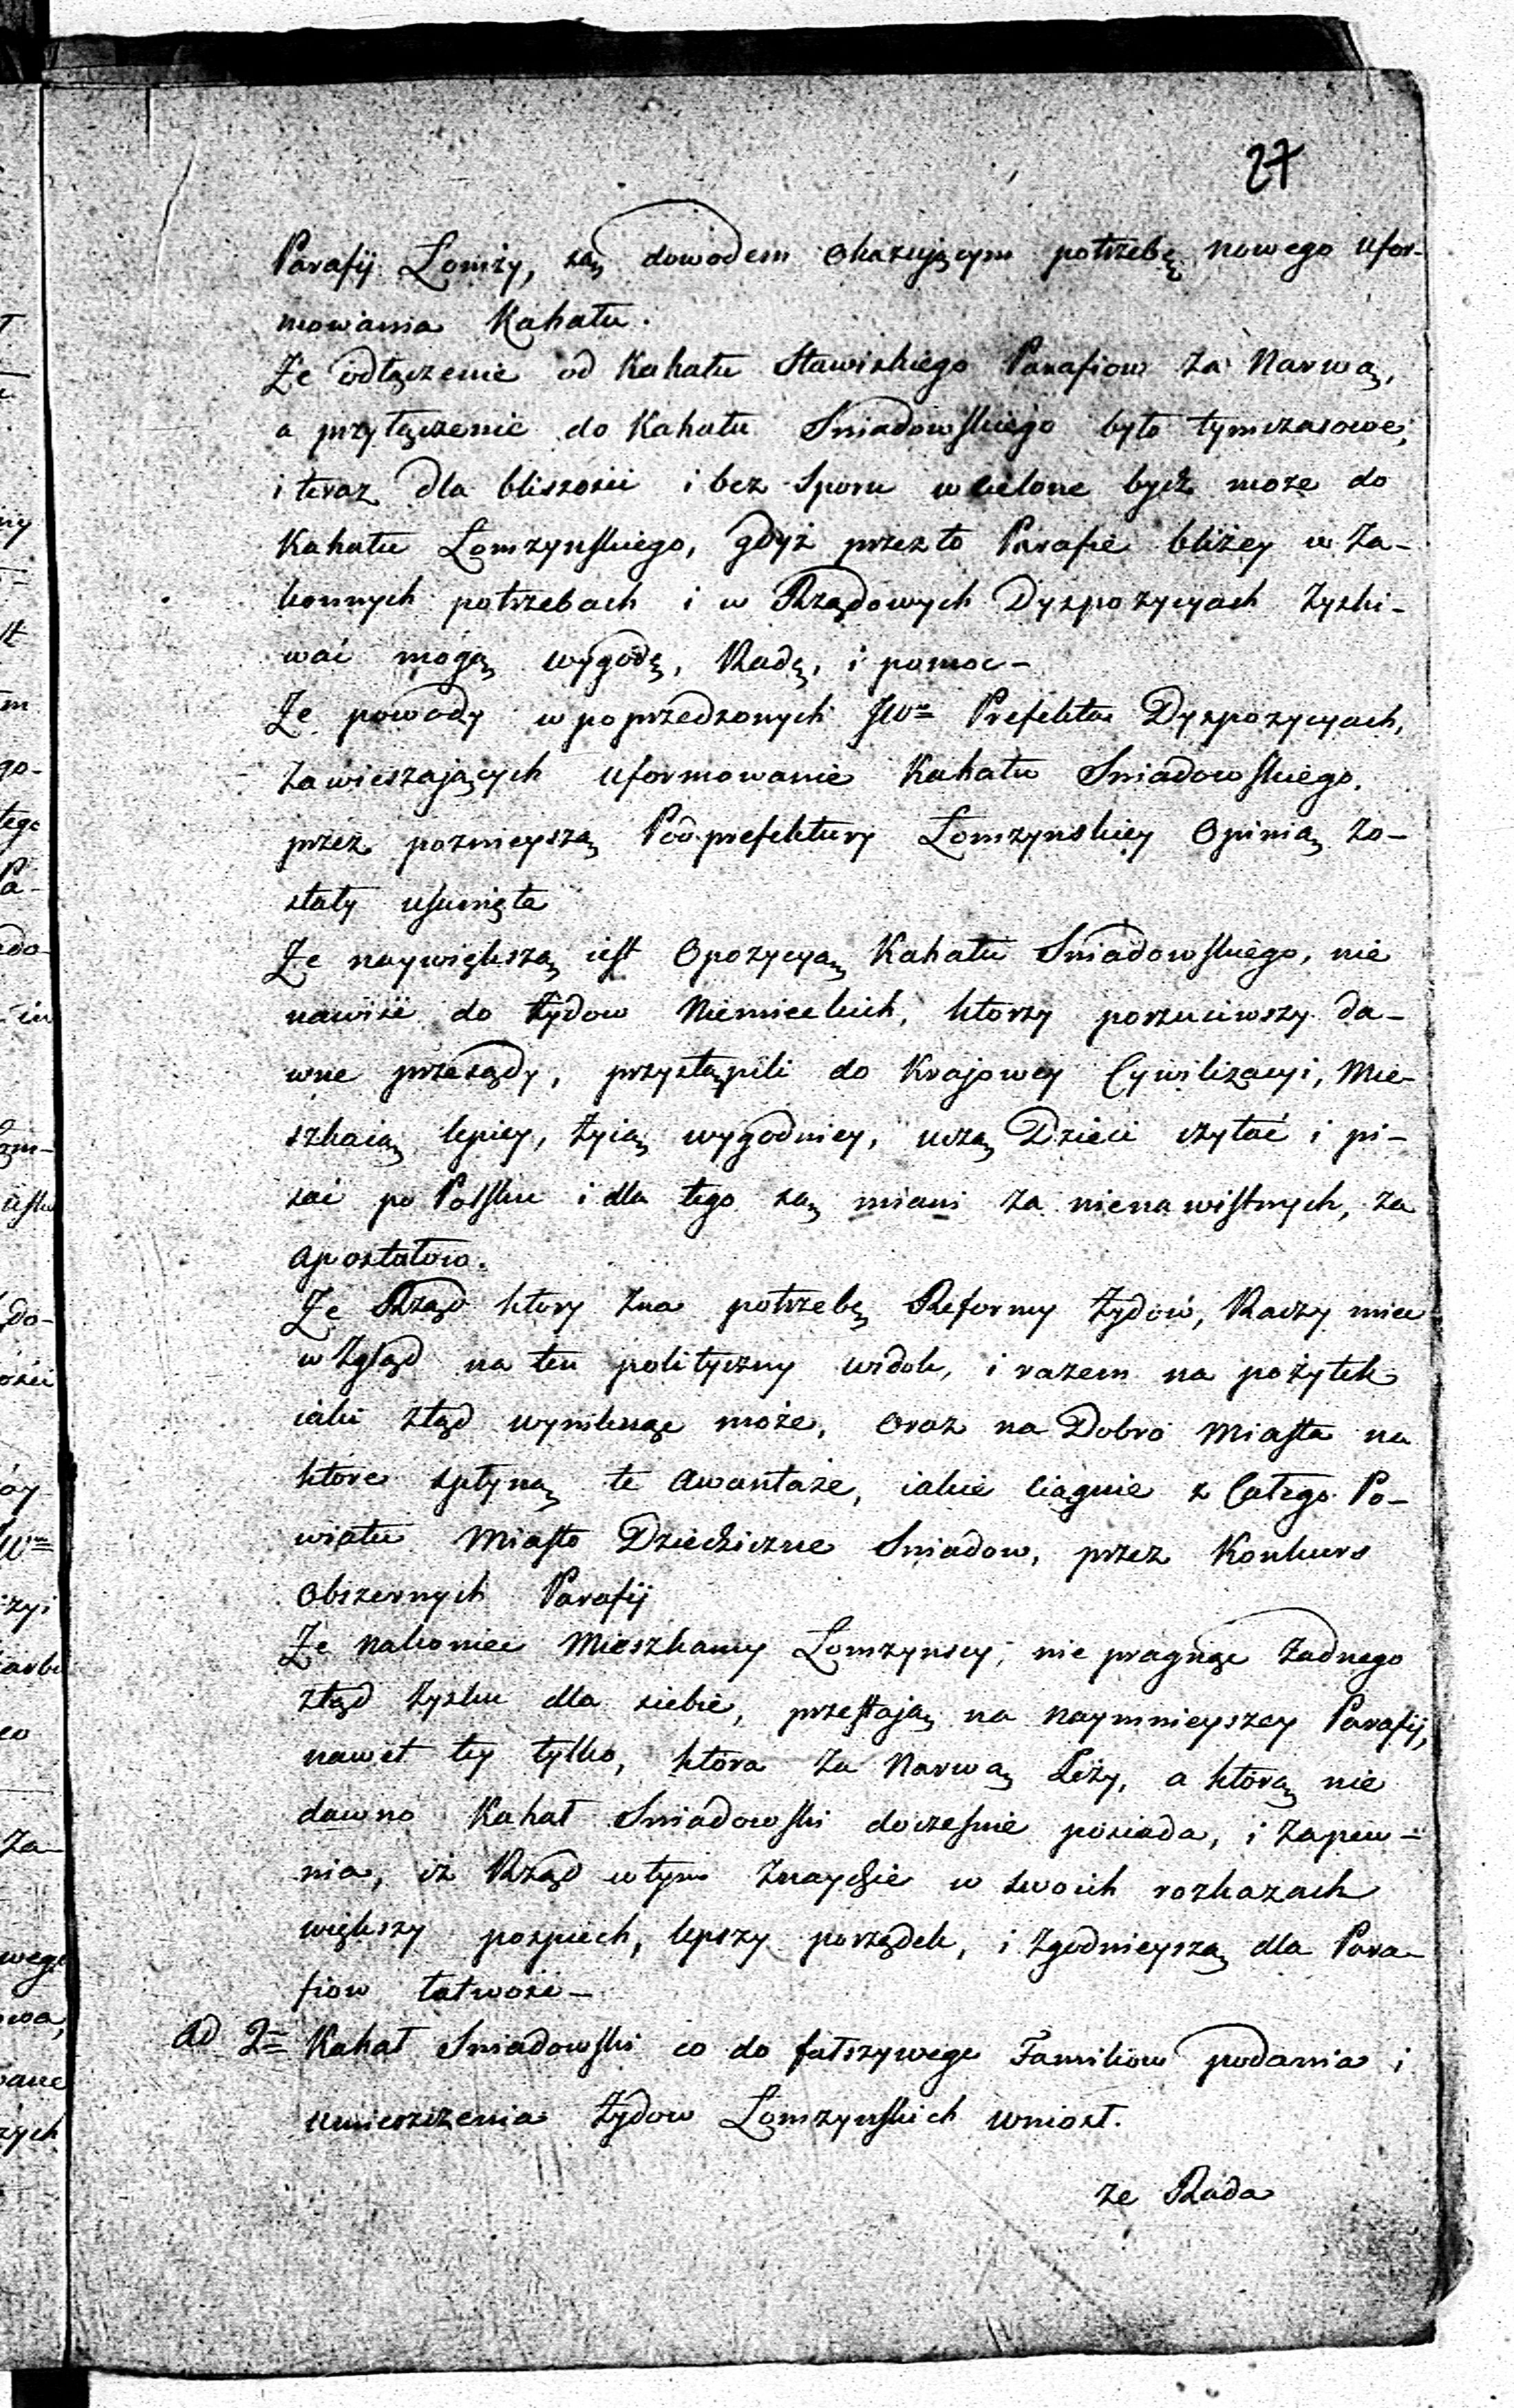 27
Parafij Łomży, są dowodem okazującym potrzebę nowego ufor-
mowania Kahału.
Że odłączenie od Kahału Stawiskiego Parafiow za Narwą,
a przyłączenie do Kahału Sniadowskiego było tymczasowe;
i teraz dla bliskości i bez sporu wcielone bydź może do
Kahału Łomzynskiego, gdyż przez to Parafie bliżey w Za-
konnych potrzebach i w Rządowych Dyspozycyach zyski-
wać mogą wygodę, Radę, i pomoc-
Że powody w poprzedzonych JWo Prefekta Dyspozycyach,
zawieszających uformowanie Kahału Sniadowskiego.
przez poznieyszą Podprefektury Łomzynskiey Opinią zo-
stały usunięte
Że naywiększą iest Opozycyą Kahału Sniadowskiego, nie
nawiść do Żydow Niemieckich, ktorzy porzuciwszy da-
wne przesądy, przystąpili do Krajowey Cywilizacyi, Mie-
szkaią lepiey, żyią wygodniey, uczą Dzieci czytać i pi-
sać po Polsku i dla tego są miani za nienawistnych, za
apostatow.
Że Rząd ktory zna potrzebę Reformy Żydow, Raczy miec
wzgląd na ten polityczny widok, i razem na pożytek
iaki ztąd wyniknąc może, oraz na Dobro Miasta na
ktore spłyną te awantaże, iakie ciągnie z całego Po-
wiatu Miasto Dziedziczne Sniadow, przez Konkurs
obszernych Parafij
Że nakoniec Mieszkancy Łomzynscy, nie pragnąc żadnego
ztąd zysku dla siebie, przestają na naymnieyszey Parafij,
nawet tey tylko, ktora za Narwą Leży, a ktorą nie
dawno Kahał Sniadowski docześnie posiada, i zapew-
nia, iż Rząd w tym znaydzie w swoich rozkazach
większy pospiech, lepszy porządek, i zgodnieyszą dla Para-
fiow łatwość-
Ad 2= Kahał Sniadowski co do fałszywego Familiow podania i
umieszczenia Żydow Łomzynskich wniosł.
ze Rada